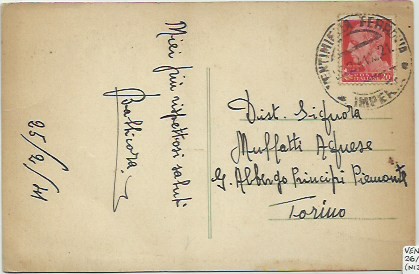 Miei più rispettosi saluti
25/2/41
VENTIMIGLIA FERROVIA
IMPER
20
Dist. Signora
Muffatti Agnese
G. Albergo Principi Piemonte
Torino
VEN
26/